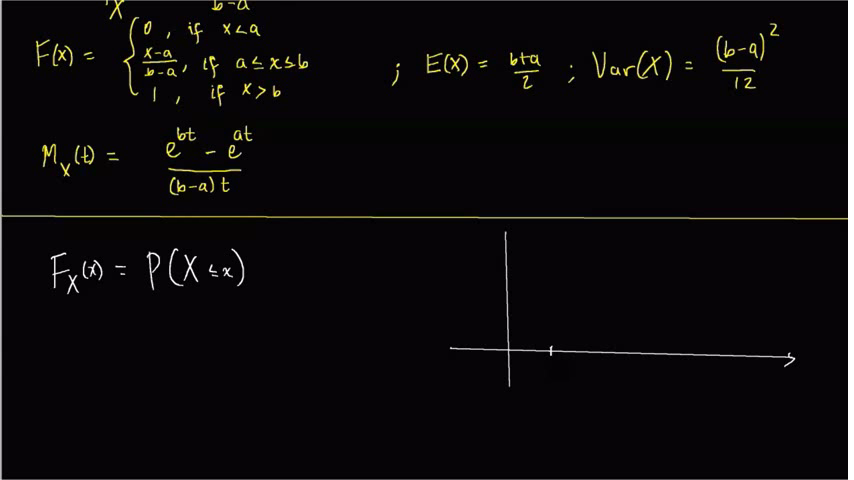 X b-a
F(x) = { 0 , if x<a
x-a/b-a , if a≤x≤b
1 , if x>b
; E(x) = b+a/2 ; Var(X) = (b-a)²/12
M_X(t) = e^bt - e^at / (b-a)t
F_X(x) = P(X≤x)